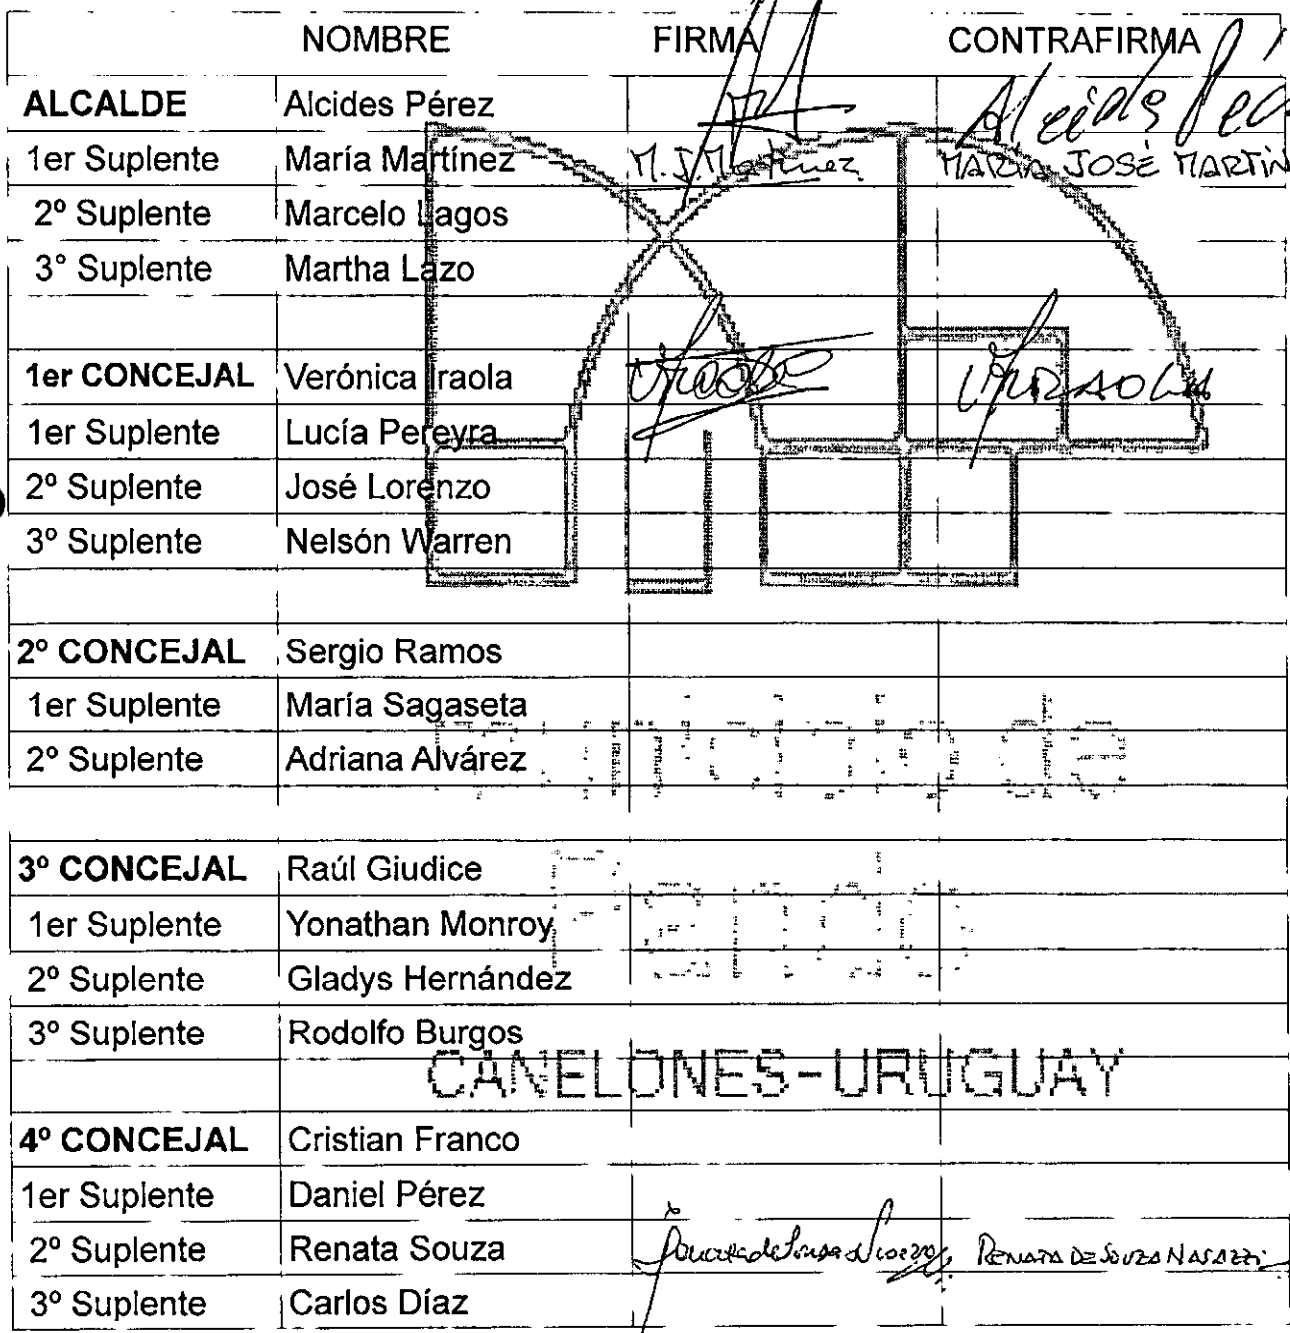 NOMBRE FIRMA CONTRAFIRMA
ALCALDE Alcides Pérez Alcides Pé
1er Suplente María Martínez M. J. Martínez MARIA JOSÉ MARTÍN
2º Suplente Marcelo Lagos
3° Suplente Martha Lazo
1er CONCEJAL Verónica Iraola VIRAOLA
1er Suplente Lucía Pereyra
2º Suplente José Lorenzo
3º Suplente Nelsón Warren
2º CONCEJAL Sergio Ramos
1er Suplente María Sagaseta
Municipio de
2º Suplente Adriana Alvárez
3º CONCEJAL Raúl Giudice
1er Suplente Yonathan Monroy
2º Suplente Gladys Hernández
3º Suplente Rodolfo Burgos
CANELONES-URUGUAY
4º CONCEJAL Cristian Franco
1er Suplente Daniel Pérez
2º Suplente Renata Souza RENATA DE SOUZA NASAZZI
3º Suplente Carlos Díaz